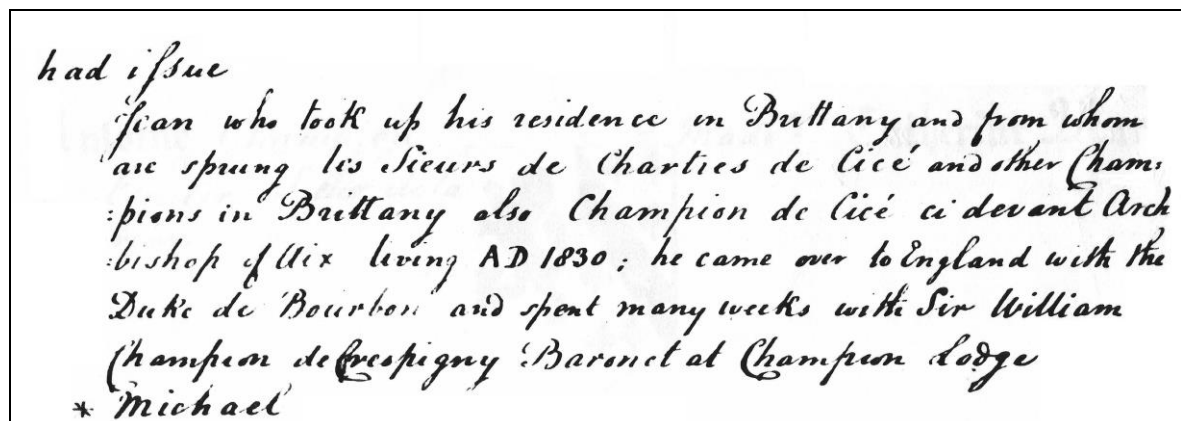 had issue
Jean who took up his residence in Brittany and from whom
are sprung les Sieurs de Chartres de Cicé and other Cham:
:pions in Brittany also Champion de Cicé ci devant Arch
:bishop of Aix living AD 1830; he came over to England with the
Duke de Bourbon and spent many weeks with Sir William
Champion de Crespigny Baronet at Champion Lodge
* Michael